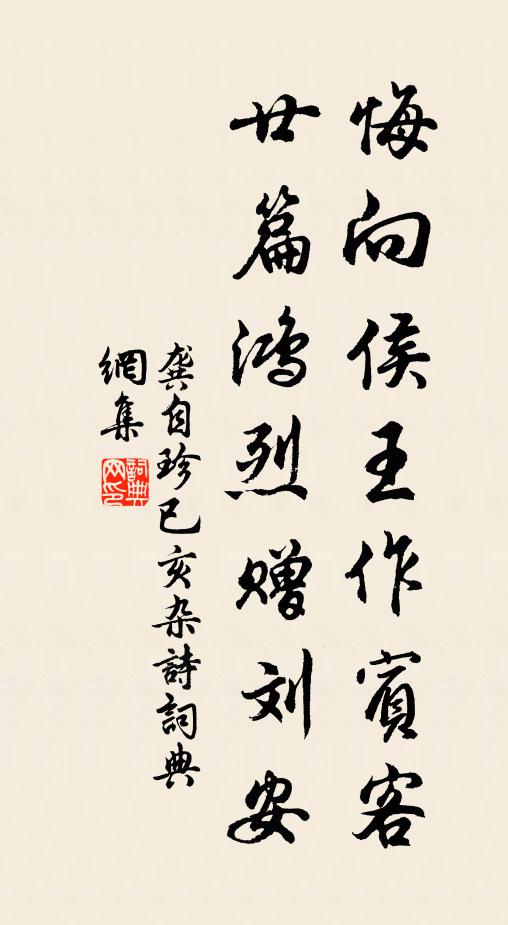 悔向侯王作賓客
廿篇鴻烈赠刘安
龚自珍已亥杂詩詞典
網集
詞典
网印